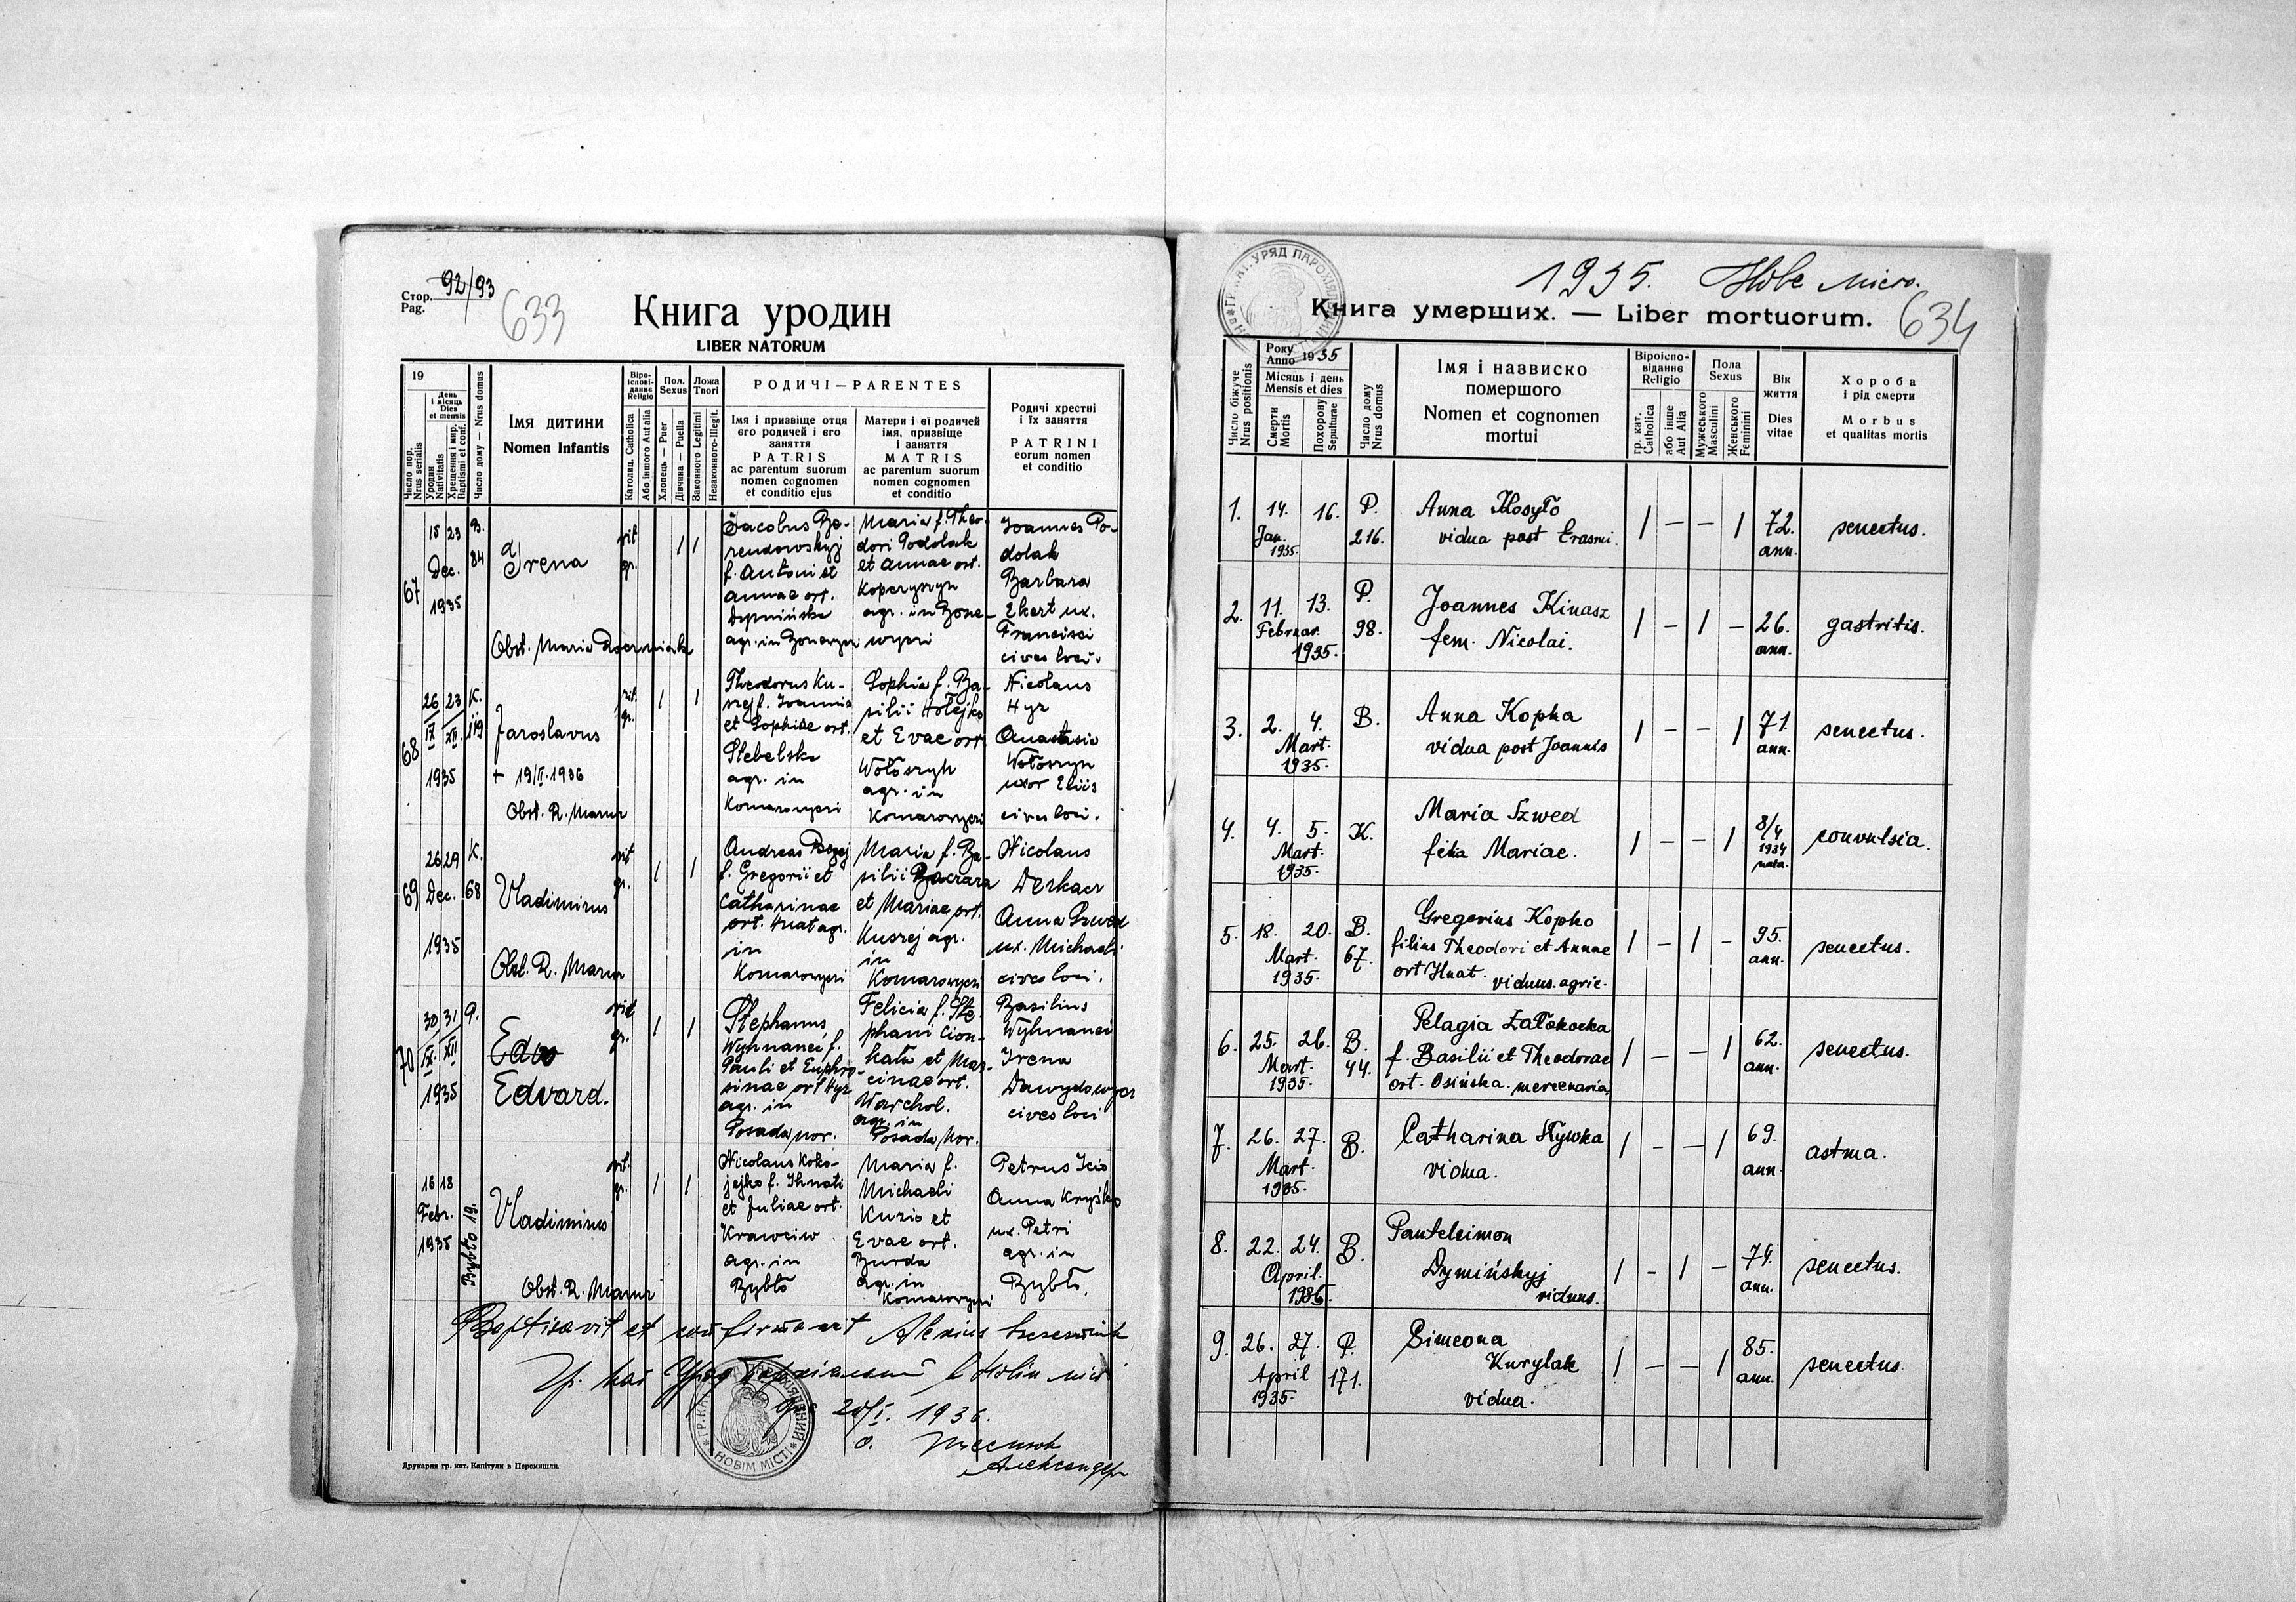 Стор. 92/93
Pag.
633
Книга уродин
LIBER NATORUM
19
Число пор.
Nrus serialis
День
і місяць
Dies
et mensis
Уродин
Nativitatis
Хрещення і мир.
Baptismi et conf.
Число дому — Nrus domus
Імя дитини
Nomen Infantis
Віро-
іспові-
даннє
Religio
Католиц. Catholica
Або іншого Aut alia
Пол.
Sexus
Хлопець — Puer
Дівчина — Puella
Ложа
Thori
Законного Legitimi
Незаконного-Illegit.
РОДИЧІ — PARENTES
Імя і призвіще отця
єго родичей і єго
заняття
PATRIS
ac parentum suorum
nomen cognomen
et conditio ejus
Матери і єї родичей
імя, призвіще
і заняття
MATRIS
ac parentum suorum
nomen cognomen
et conditio
Родичі хрестні
і їх заняття
PATRINI
eorum nomen
et conditio
67
15 23
Dec.
1935
B.
84
Irena
Obst. Maria
rit
gr.
1 1
Jacobus Be-
rendowskyj
f. Antoni et
Annae ort.
Dyminska
agr. in
Maria f. Theo-
dori Podolak
et Annae ort.
Koperyszyn
agr. in
Joannes Po-
dolak
Barbara
Ekert ux.
Francisci
cives loci.
68
26 23
IX XII
1935
K.
119
Jaroslavus
+ 19/II.1936
Obst. R. Mazur
rit.
gr.
1 1
Theodorus Ku-
szej f. Joannis
et Sophiae ort.
Stebelska
agr. in
Komarowyczi
Sophia f. Ba-
silii Hołejko
et Evae ort.
Wołoszyn
agr. in
Komarowyczi
Nicolaus
Hyz
Anastasia
Wołoszyn
uxor Eliis
cives loci.
69
26 29
Dec.
1935
K.
68
Vladimirus
Obst. R. Mazur
rit
gr.
1 1
Andreas
f. Gregorii et
Catharinae
ort. Hnat agr.
in
Komarowyczi
Maria f. Ba-
silii Baczara
et Mariae ort.
Kuszej agr.
in
Komarowyczi
Nicolaus
Derkacz
Anna Szwed
ux. Michaeli
cives loci.
70
30 31
IX. XII
1935
P.
Edw
Edvard.
rit
gr.
1 1
Stephanus
Wyhnanci f.
Pauli et Euphro-
sinae ort Hyz
agr. in
Posada nov.
Felicia f. Ste-
phani Cion-
kała et Mar-
cinae ort.
Warchol.
agr. in
Posada Nov.
Basilius
Wyhnanci
Irena
Dawydowycz
cives loci
16 18
Febr.
1935
Vladimirus
Obst. R. Mazur
rit.
gr.
1 1
Nicolaus Koko-
jejko f. Ihnati
et Juliae ort.
Krawciw
agr. in
Rybło
Maria f.
Michaeli
Kuzio et
Evae ort.
Burda
agr. in
Komarowyczi
Petrus Icio
Anna Kryśko
ux. Petri
agr. in
Rybło.
Baptisavit et confirmavit Alexius
20/I. 1936.
о.
Александер
НОВІМ МІСТІ
Друкарня гр. кат. Капітули в Перемишли.
1935. Нове Місто.
634
Книга умерших. — Liber mortuorum.
Число біжуче
Nrus positionis
Року
Anno 1935
Місяць і день
Mensis et dies
Смерти
Mortis
Похорону
Sepulturae
Число дому
Nrus domus
Імя і назвиско
помершого
Nomen et cognomen
mortui
Віроіспо-
віданнє
Religio
гр. кат.
Catholica
або інше
Aut Alia
Пола
Sexus
Мужеського
Masculini
Женського
Feminini
Вік
життя
Dies
vitae
Хороба
і рід смерти
Morbus
et qualitas mortis
1. 14. 16. P. Anna Kosyło 1 — — 1 72. senectus.
Jan. 216. vidua post Erasmi. ann.
1935.
2. 11. 13. P. Joannes Kinasz 1 — 1 — 26. gastritis.
Februar. 98. fem. Nicolai. ann.
1935.
3. 2. 4. B. Anna Kopka 1 — — 1 71. senectus.
Mart. vidua post Joannis ann.
1935.
4. 4. 5. K. Maria Szwed 1 — — 1 8/4 convulsia.
Mart. filia Mariae. 1934
1935. nata.
5. 18. 20. B. Gregorius Kopko 1 — 1 — 95. senectus.
Mart. 67. filius Theodori et Annae ann.
1935. ort Hnat. viduus. agric.
6. 25. 26. B. Pelagia Załokocka 1 — — 1 62. senectus.
Mart. 44. f. Basilii et Theodorae ann.
1935. ort. Osińska. mercenaria
7. 26. 27. B. Catharina Hywka 1 — — 1 69. astma.
Mart. vidua. ann.
1935.
8. 22. 24. B. Panteleimon 1 — 1 — 74. senectus.
April. Dymińskyj ann.
1935. viduus.
9. 26. 27. P. Simeona 1 — — 1 85. senectus
April 171. Kurylak ann.
1935. vidua.